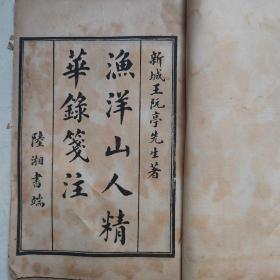 新城王阮亭先生著
漁洋山人精
華錄箋注
陸湘書端